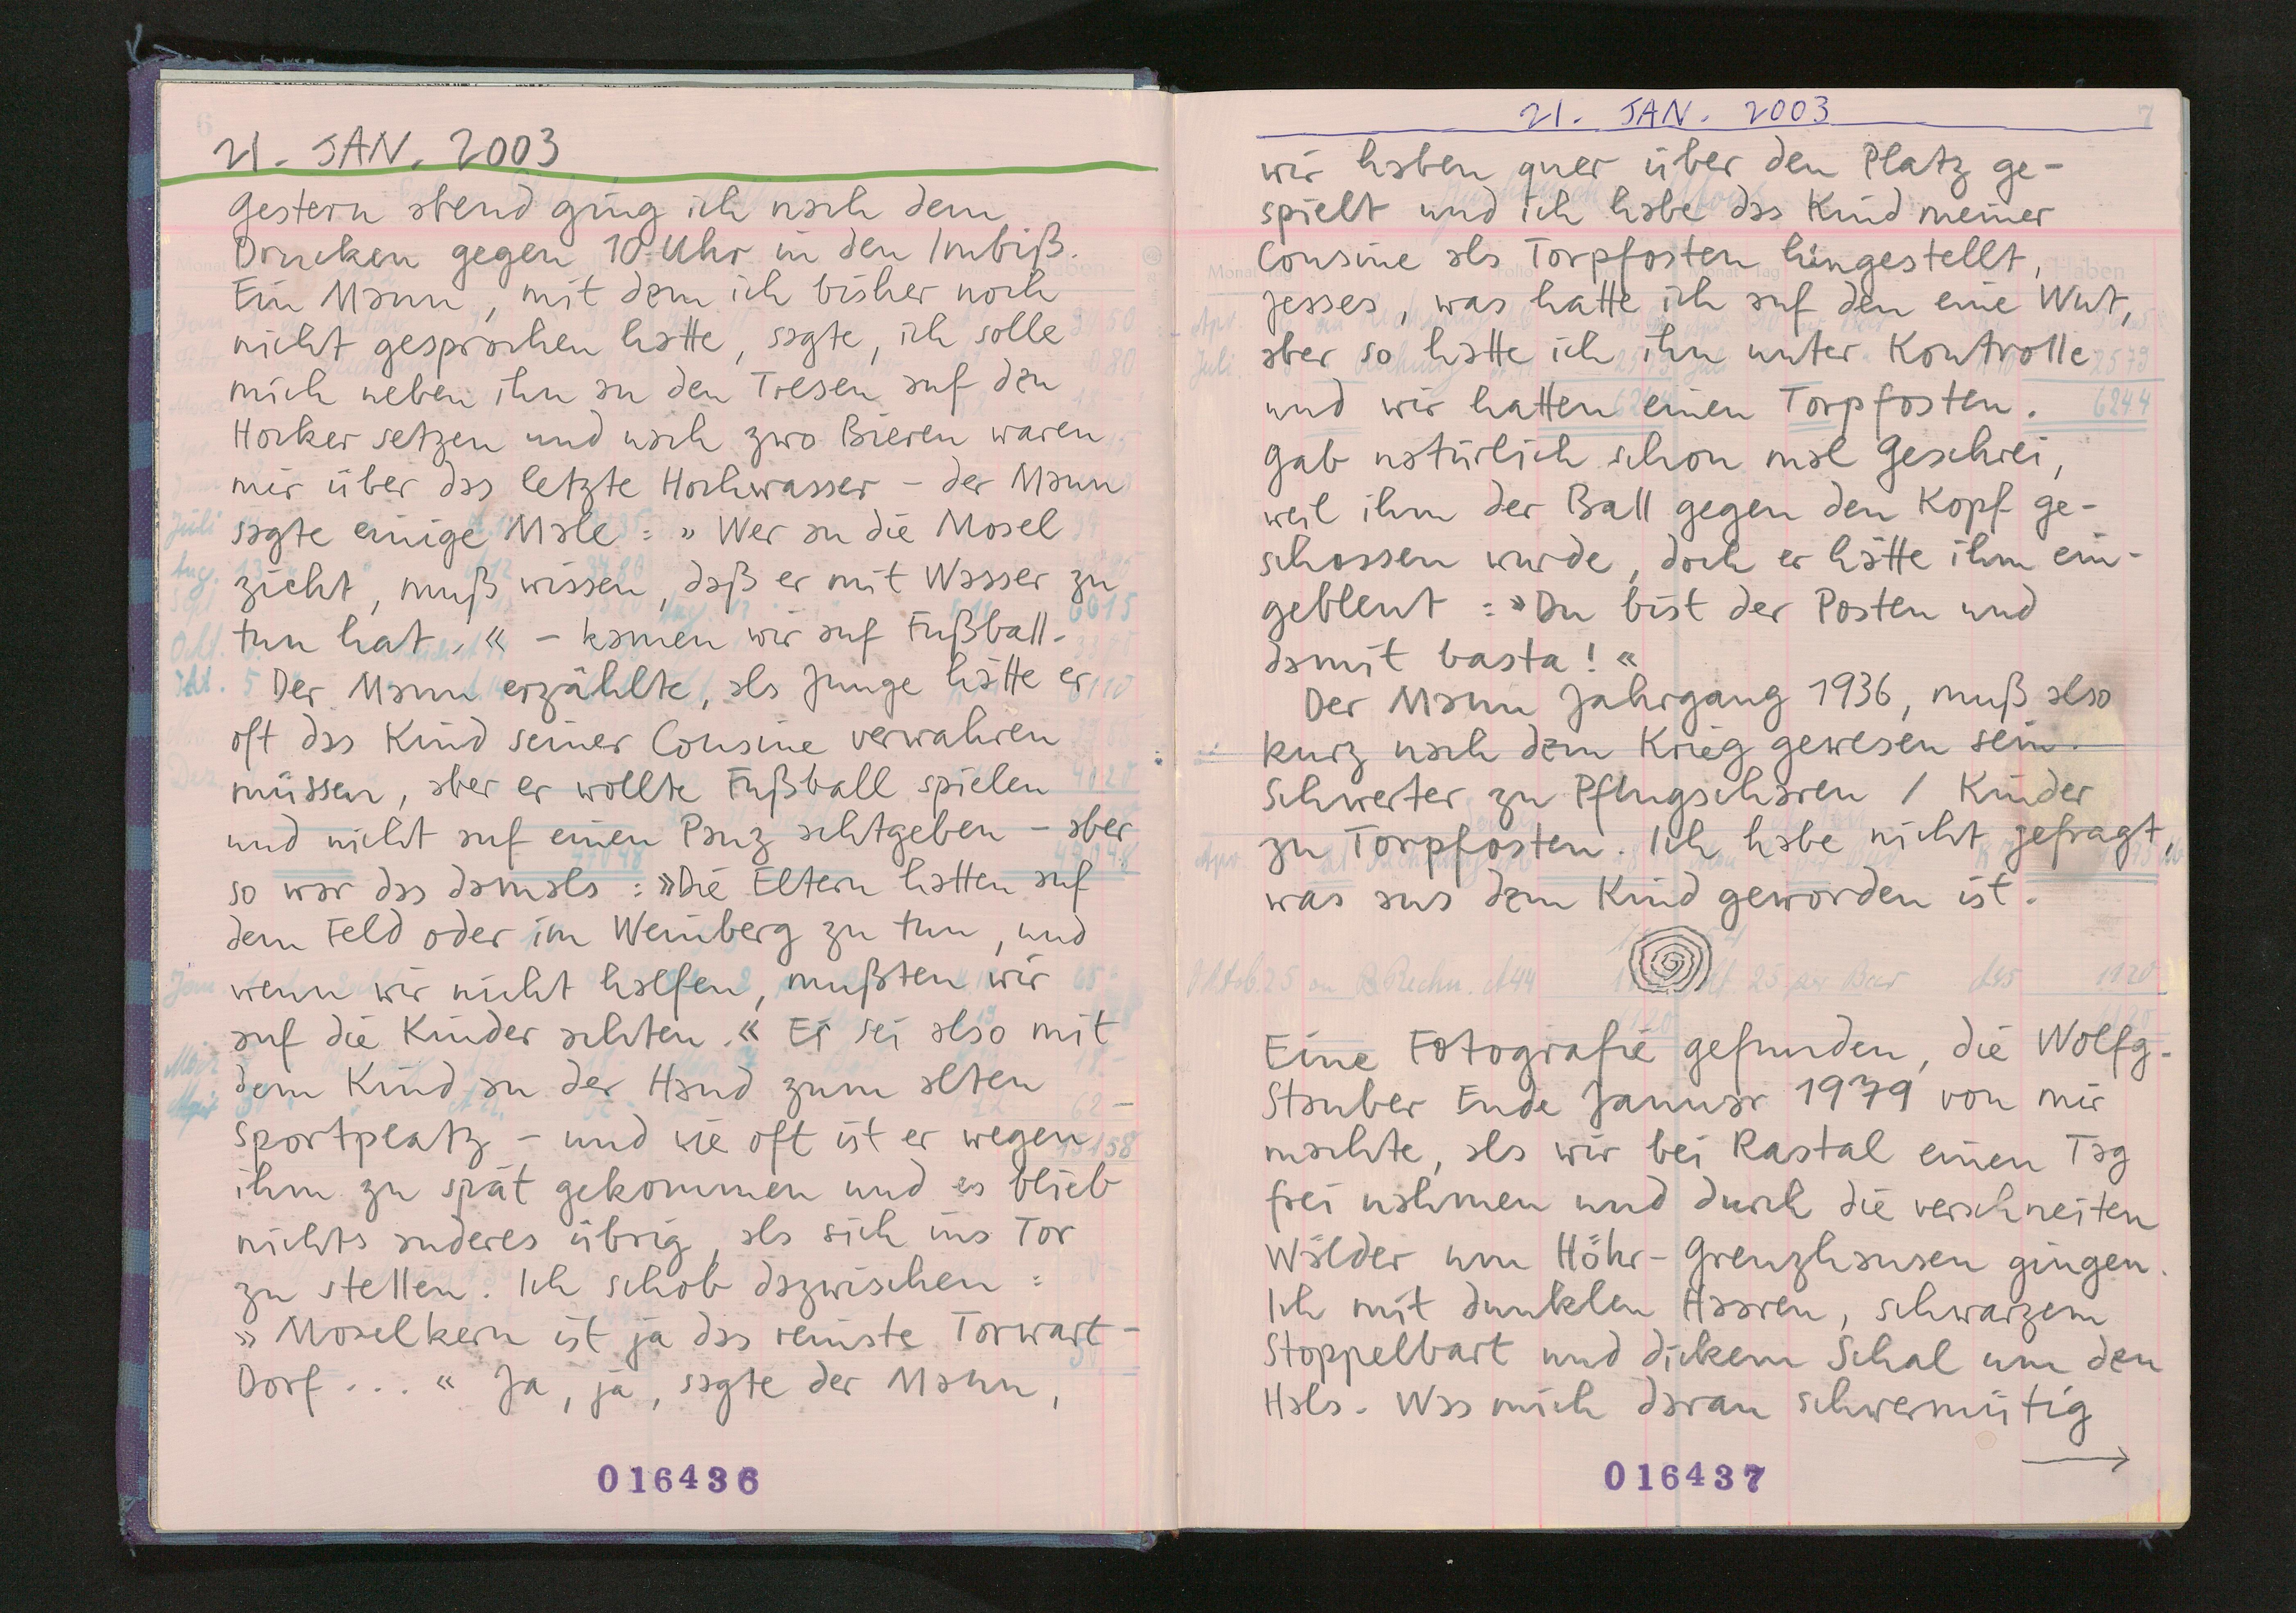 21. JAN. 2003
Gestern abend ging ich nach dem
Drucken gegen 10 Uhr in den Imbiß.
Ein Mann, mit dem ich bisher noch
nicht gesprochen hatte, sagte, ich solle
mich neben ihn an den Tresen auf den
Hocker setzen und nach zwo Bieren waren
mir über das letzte Hochwasser – der Mann
sagte einige Male: »Wer an die Mosel
zieht, muß wissen, daß er mit Wasser zu
tun hat.« – kamen wir auf Fußball.
Der Mann erzählte, als Junge hätte er
oft das Kind seiner Cousine verwahren
müssen, aber er wollte Fußball spielen
und nicht auf einen Panz achtgeben – aber
so war das damals: »Die Eltern hatten auf
dem Feld oder im Weinberg zu tun, und
wenn wir nicht halfen, mußten wir
auf die Kinder achten.« Er sei also mit
dem Kind an der Hand zum alten
Sportplatz – und wie oft ist er wegen
ihm zu spät gekommen und es blieb
nichts anderes übrig, als sich ins Tor
zu stellen. Ich schob dazwischen:
»Moselkern ist ja das reinste Torwart-
Dorf...« Ja, ja, sagte der Mann,
016436
21. JAN. 2003
7
wir haben quer über den Platz ge-
spielt und ich habe das Kind meiner
Cousine als Torpfosten hingestellt,
jesses, was hatte ich auf den eine Wut,
aber so hatte ich ihn unter Kontrolle
und wir hatten einen Torpfosten.
Gab natürlich schon mal Geschrei,
weil ihm der Ball gegen den Kopf ge-
schossen wurde, doch er hätte ihm ein-
gebleut: »Du bist der Posten und
damit basta!«
Der Mann Jahrgang 1936, muß also
kurz nach dem Krieg gewesen sein.
Schwerter zu Pflugscharen / Kinder
zu Torpfosten. Ich habe nicht gefragt,
was aus dem Kind geworden ist.
Eine Fotografie gefunden, die Wolfg.
Stauber Ende Januar 1979 von mir
machte, als wir bei Rastal einen Tag
frei nahmen und durch die verschneiten
Wälder um Höhr-Grenzhausen gingen.
Ich mit dunklen Haaren, schwarzem
Stoppelbart und dickem Schal um den
Hals. Was mich daran schwermütig
016437